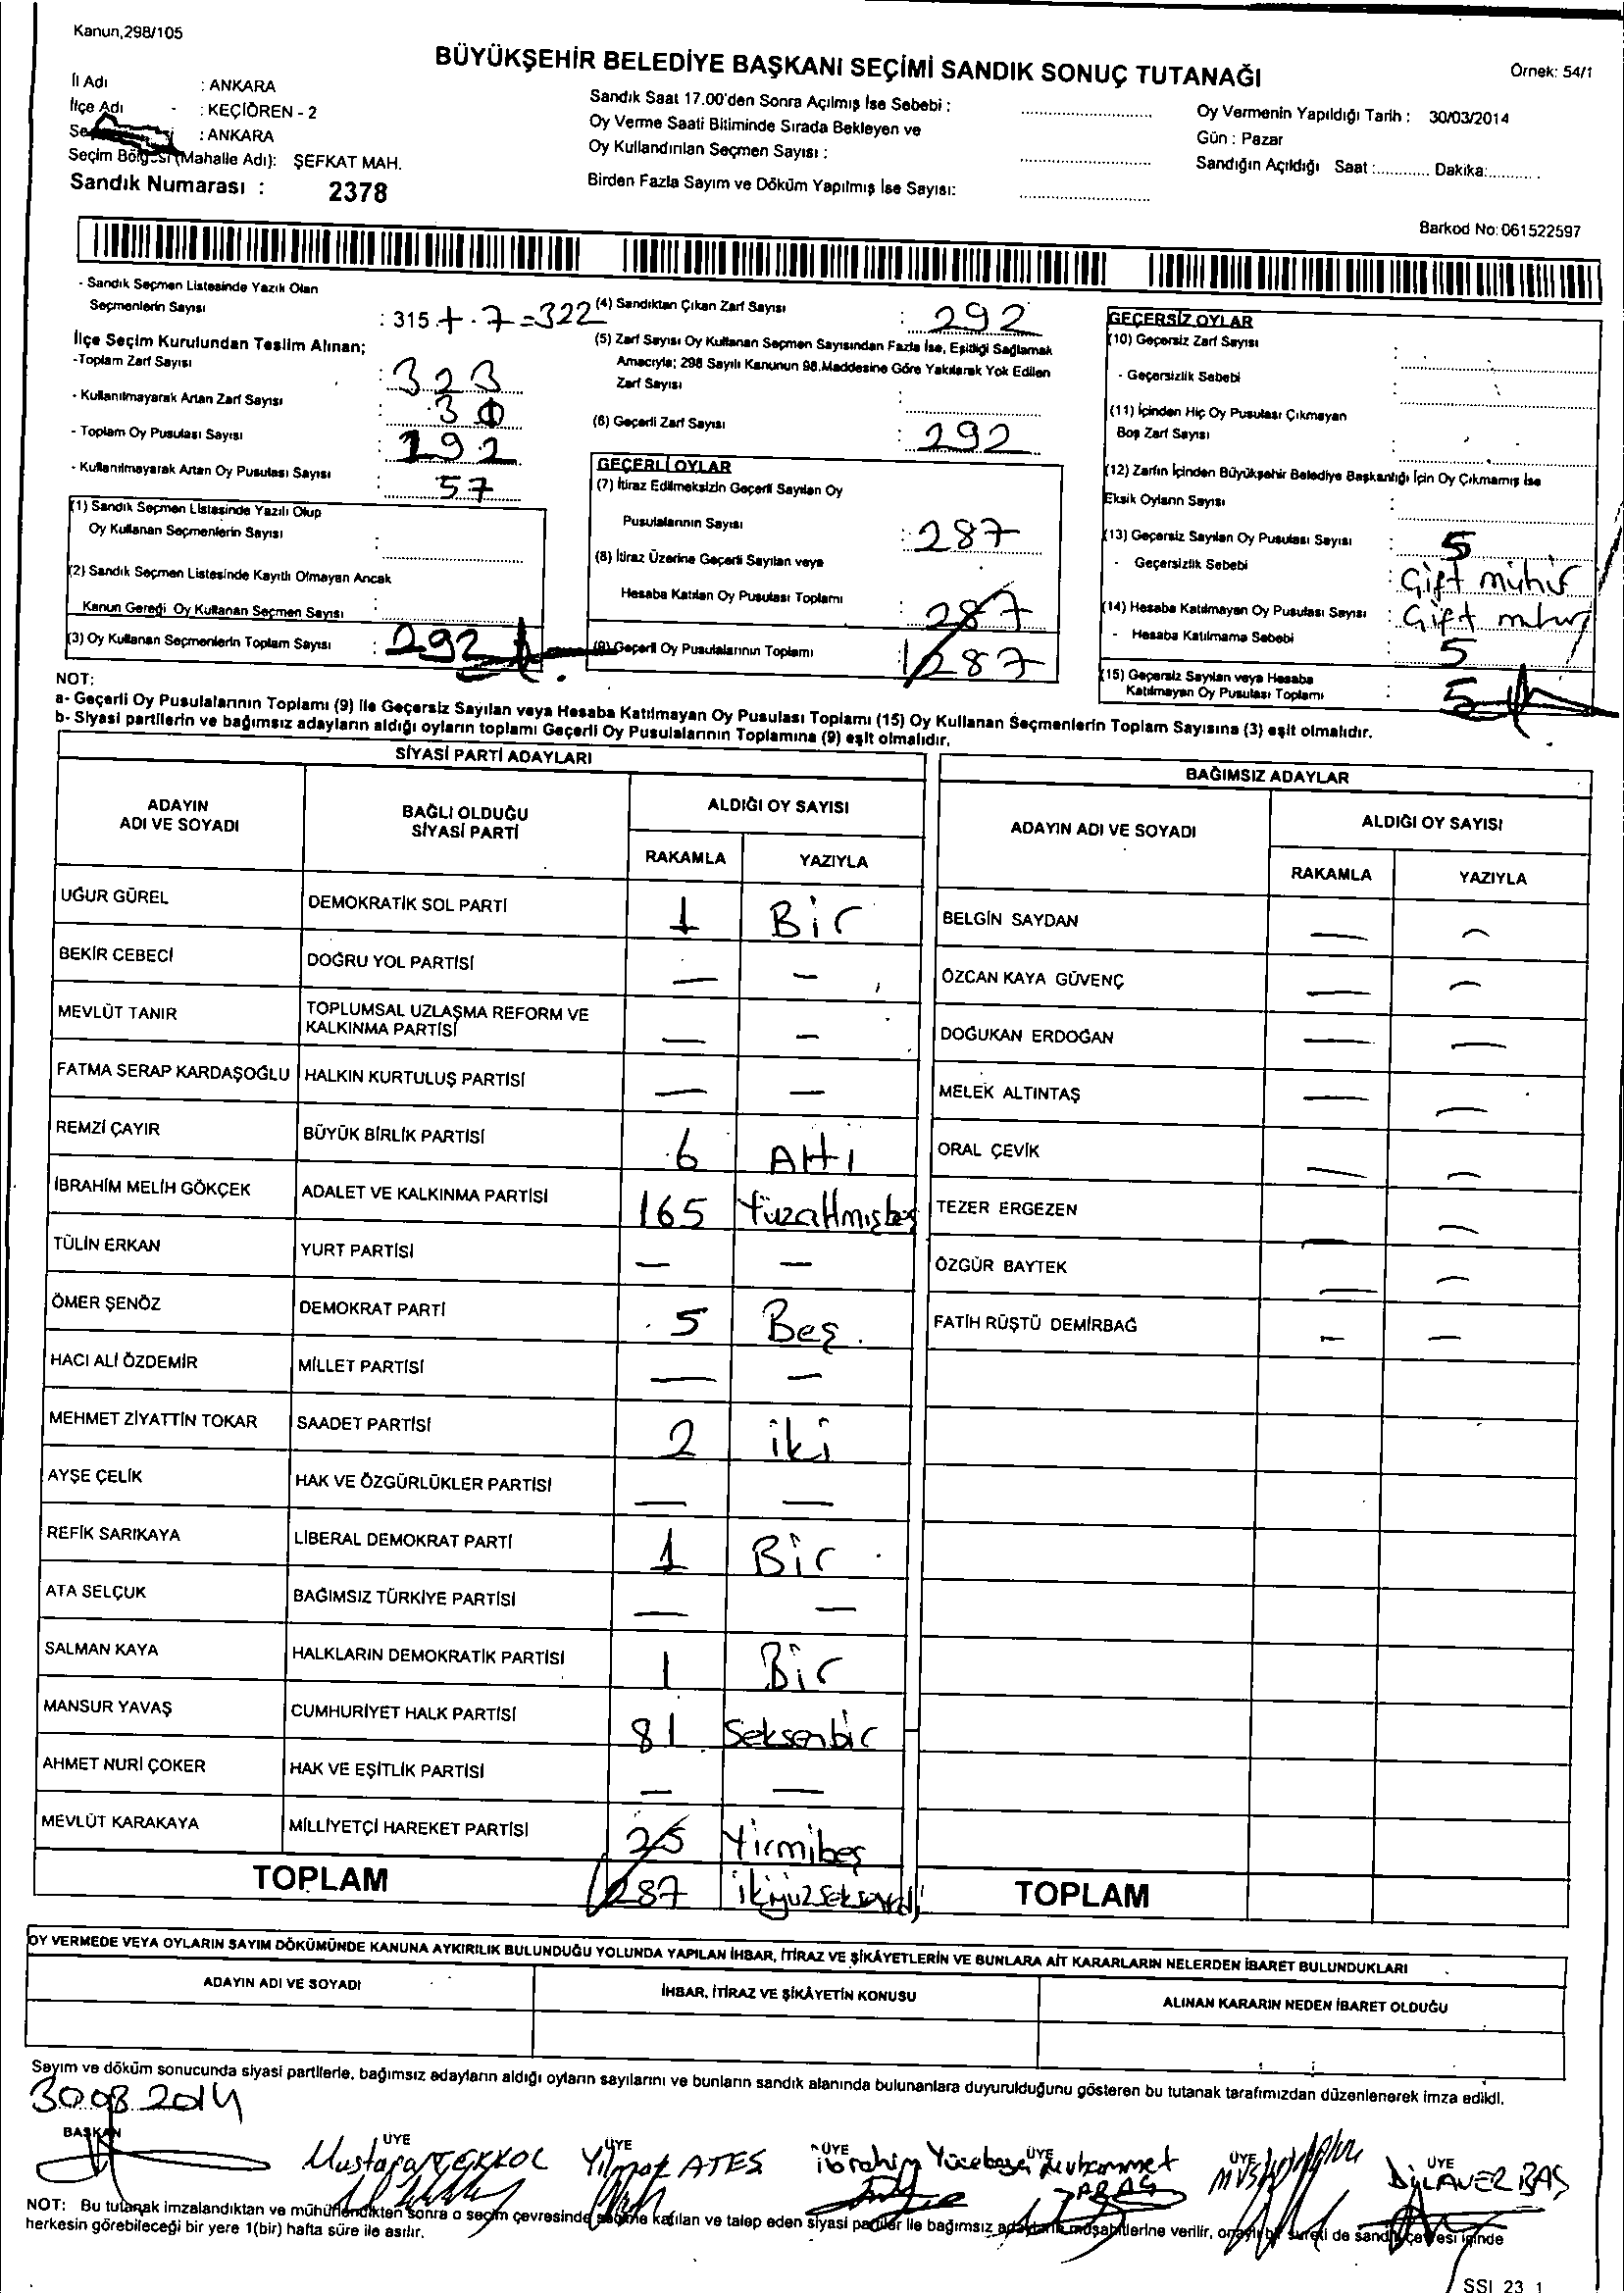 Kanun,298/105
BÜYÜKŞEHİR BELEDİYE BAŞKANI SEÇİMİ SANDIK SONUÇ TUTANAĞI
Örnek: 54/1
İl Adı : ANKARA
İlçe Adı - : KEÇİÖREN - 2
: ANKARA
Seçim Bölgesi (Mahalle Adı): ŞEFKAT MAH.
Sandık Numarası : 2378
Sandık Saat 17.00'den Sonra Açılmış İse Sebebi :
Oy Verme Saati Bitiminde Sırada Bekleyen ve
Oy Kullandırılan Seçmen Sayısı :
Birden Fazla Sayım ve Döküm Yapılmış İse Sayısı:
Oy Vermenin Yapıldığı Tarih : 30/03/2014
Gün : Pazar
Sandığın Açıldığı Saat :............ Dakika:...........
Barkod No: 061522597
- Sandık Seçmen Listesinde Yazılı Olan
Seçmenlerin Sayısı : 315 + 7 = 322
İlçe Seçim Kurulundan Teslim Alınan;
-Toplam Zarf Sayısı : 323
- Kullanılmayarak Artan Zarf Sayısı :
- Toplam Oy Pusulası Sayısı :
- Kullanılmayarak Artan Oy Pusulası Sayısı : 57
(1) Sandık Seçmen Listesinde Yazılı Olup
Oy Kullanan Seçmenlerin Sayısı :
(2) Sandık Seçmen Listesinde Kayıtlı Olmayan Ancak
Kanun Gereği Oy Kullanan Seçmen Sayısı :
(3) Oy Kullanan Seçmenlerin Toplam Sayısı : 292
(4) Sandıktan Çıkan Zarf Sayısı : 292
(5) Zarf Sayısı Oy Kullanan Seçmen Sayısından Fazla İse, Eşitliği Sağlamak
Amacıyla; 298 Sayılı Kanunun 98.Maddesine Göre Yakılarak Yok Edilen
Zarf Sayısı :
(6) Geçerli Zarf Sayısı : 292
GEÇERLİ OYLAR
(7) İtiraz Edilmeksizin Geçerli Sayılan Oy
Pusulalarının Sayısı : 287
(8) İtiraz Üzerine Geçerli Sayılan veya
Hesaba Katılan Oy Pusulası Toplamı : 287
(9) Geçerli Oy Pusulalarının Toplamı : 287
GEÇERSİZ OYLAR
(10) Geçersiz Zarf Sayısı :
- Geçersizlik Sebebi
(11) İçinden Hiç Oy Pusulası Çıkmayan
Boş Zarf Sayısı :
(12) Zarfın İçinden Büyükşehir Belediye Başkanlığı İçin Oy Çıkmamış İse
Eksik Oyların Sayısı
(13) Geçersiz Sayılan Oy Pusulası Sayısı : 5
- Geçersizlik Sebebi : Çift mühür
(14) Hesaba Katılmayan Oy Pusulası Sayısı : Çift mühür
- Hesaba Katılmama Sebebi : 5
(15) Geçersiz Sayılan veya Hesaba
Katılmayan Oy Pusulası Toplamı : 5
NOT:
a- Geçerli Oy Pusulalarının Toplamı (9) ile Geçersiz Sayılan veya Hesaba Katılmayan Oy Pusulası Toplamı (15) Oy Kullanan Seçmenlerin Toplam Sayısına (3) eşit olmalıdır.
b- Siyasi partilerin ve bağımsız adayların aldığı oyların toplamı Geçerli Oy Pusulalarının Toplamına (9) eşit olmalıdır.
SİYASİ PARTİ ADAYLARI
ADAYIN ADI VE SOYADI BAĞLI OLDUĞU SİYASİ PARTİ ALDIĞI OY SAYISI
RAKAMLA YAZIYLA
UĞUR GÜREL DEMOKRATİK SOL PARTİ 1 Bir
BEKİR CEBECİ DOĞRU YOL PARTİSİ — —
MEVLÜT TANIR TOPLUMSAL UZLAŞMA REFORM VE KALKINMA PARTİSİ — —
FATMA SERAP KARDAŞOĞLU HALKIN KURTULUŞ PARTİSİ — —
REMZİ ÇAYIR BÜYÜK BİRLİK PARTİSİ 6 Altı
İBRAHİM MELİH GÖKÇEK ADALET VE KALKINMA PARTİSİ 165 Yüzaltmışbeş
TÜLİN ERKAN YURT PARTİSİ — —
ÖMER ŞENÖZ DEMOKRAT PARTİ 5 Beş
HACI ALİ ÖZDEMİR MİLLET PARTİSİ — —
MEHMET ZİYATTİN TOKAR SAADET PARTİSİ 2 iki
AYŞE ÇELİK HAK VE ÖZGÜRLÜKLER PARTİSİ — —
REFİK SARIKAYA LİBERAL DEMOKRAT PARTİ 1 Bir
ATA SELÇUK BAĞIMSIZ TÜRKİYE PARTİSİ — —
SALMAN KAYA HALKLARIN DEMOKRATİK PARTİSİ 1 Bir
MANSUR YAVAŞ CUMHURİYET HALK PARTİSİ 81 Seksenbir
AHMET NURİ ÇOKER HAK VE EŞİTLİK PARTİSİ — —
MEVLÜT KARAKAYA MİLLİYETÇİ HAREKET PARTİSİ 25 Yirmibeş
TOPLAM 287 ikiyüzseksenyedi
BAĞIMSIZ ADAYLAR
ADAYIN ADI VE SOYADI ALDIĞI OY SAYISI
RAKAMLA YAZIYLA
BELGİN SAYDAN — —
ÖZCAN KAYA GÜVENÇ — —
DOĞUKAN ERDOĞAN — —
MELEK ALTINTAŞ — —
ORAL ÇEVİK — —
TEZER ERGEZEN — —
ÖZGÜR BAYTEK — —
FATİH RÜŞTÜ DEMİRBAĞ — —
TOPLAM
OY VERMEDE VEYA OYLARIN SAYIM DÖKÜMÜNDE KANUNA AYKIRILIK BULUNDUĞU YOLUNDA YAPILAN İHBAR, İTİRAZ VE ŞİKÂYETLERİN VE BUNLARA AİT KARARLARIN NELERDEN İBARET BULUNDUKLARI
ADAYIN ADI VE SOYADI İHBAR, İTİRAZ VE ŞİKÂYETİN KONUSU ALINAN KARARIN NEDEN İBARET OLDUĞU
Sayım ve döküm sonucunda siyasi partilerle, bağımsız adayların aldığı oyların sayılarını ve bunların sandık alanında bulunanlara duyurulduğunu gösteren bu tutanak tarafımızdan düzenlenerek imza edildi.
30.03.2014
BAŞKAN ÜYE ÜYE ÜYE ÜYE ÜYE ÜYE
Mustafa TEKKOL Yılmaz ATEŞ İbrahim DİLAVER BAŞ
NOT: Bu tutanak imzalandıktan ve mühürlendikten sonra o seçim çevresinde seçime katılan ve talep eden siyasi partiler ile bağımsız adayların müşahitlerine verilir, onaylı bir sureti de sandık çevresi içinde
herkesin görebileceği bir yere 1(bir) hafta süre ile asılır.
SSI 23 1